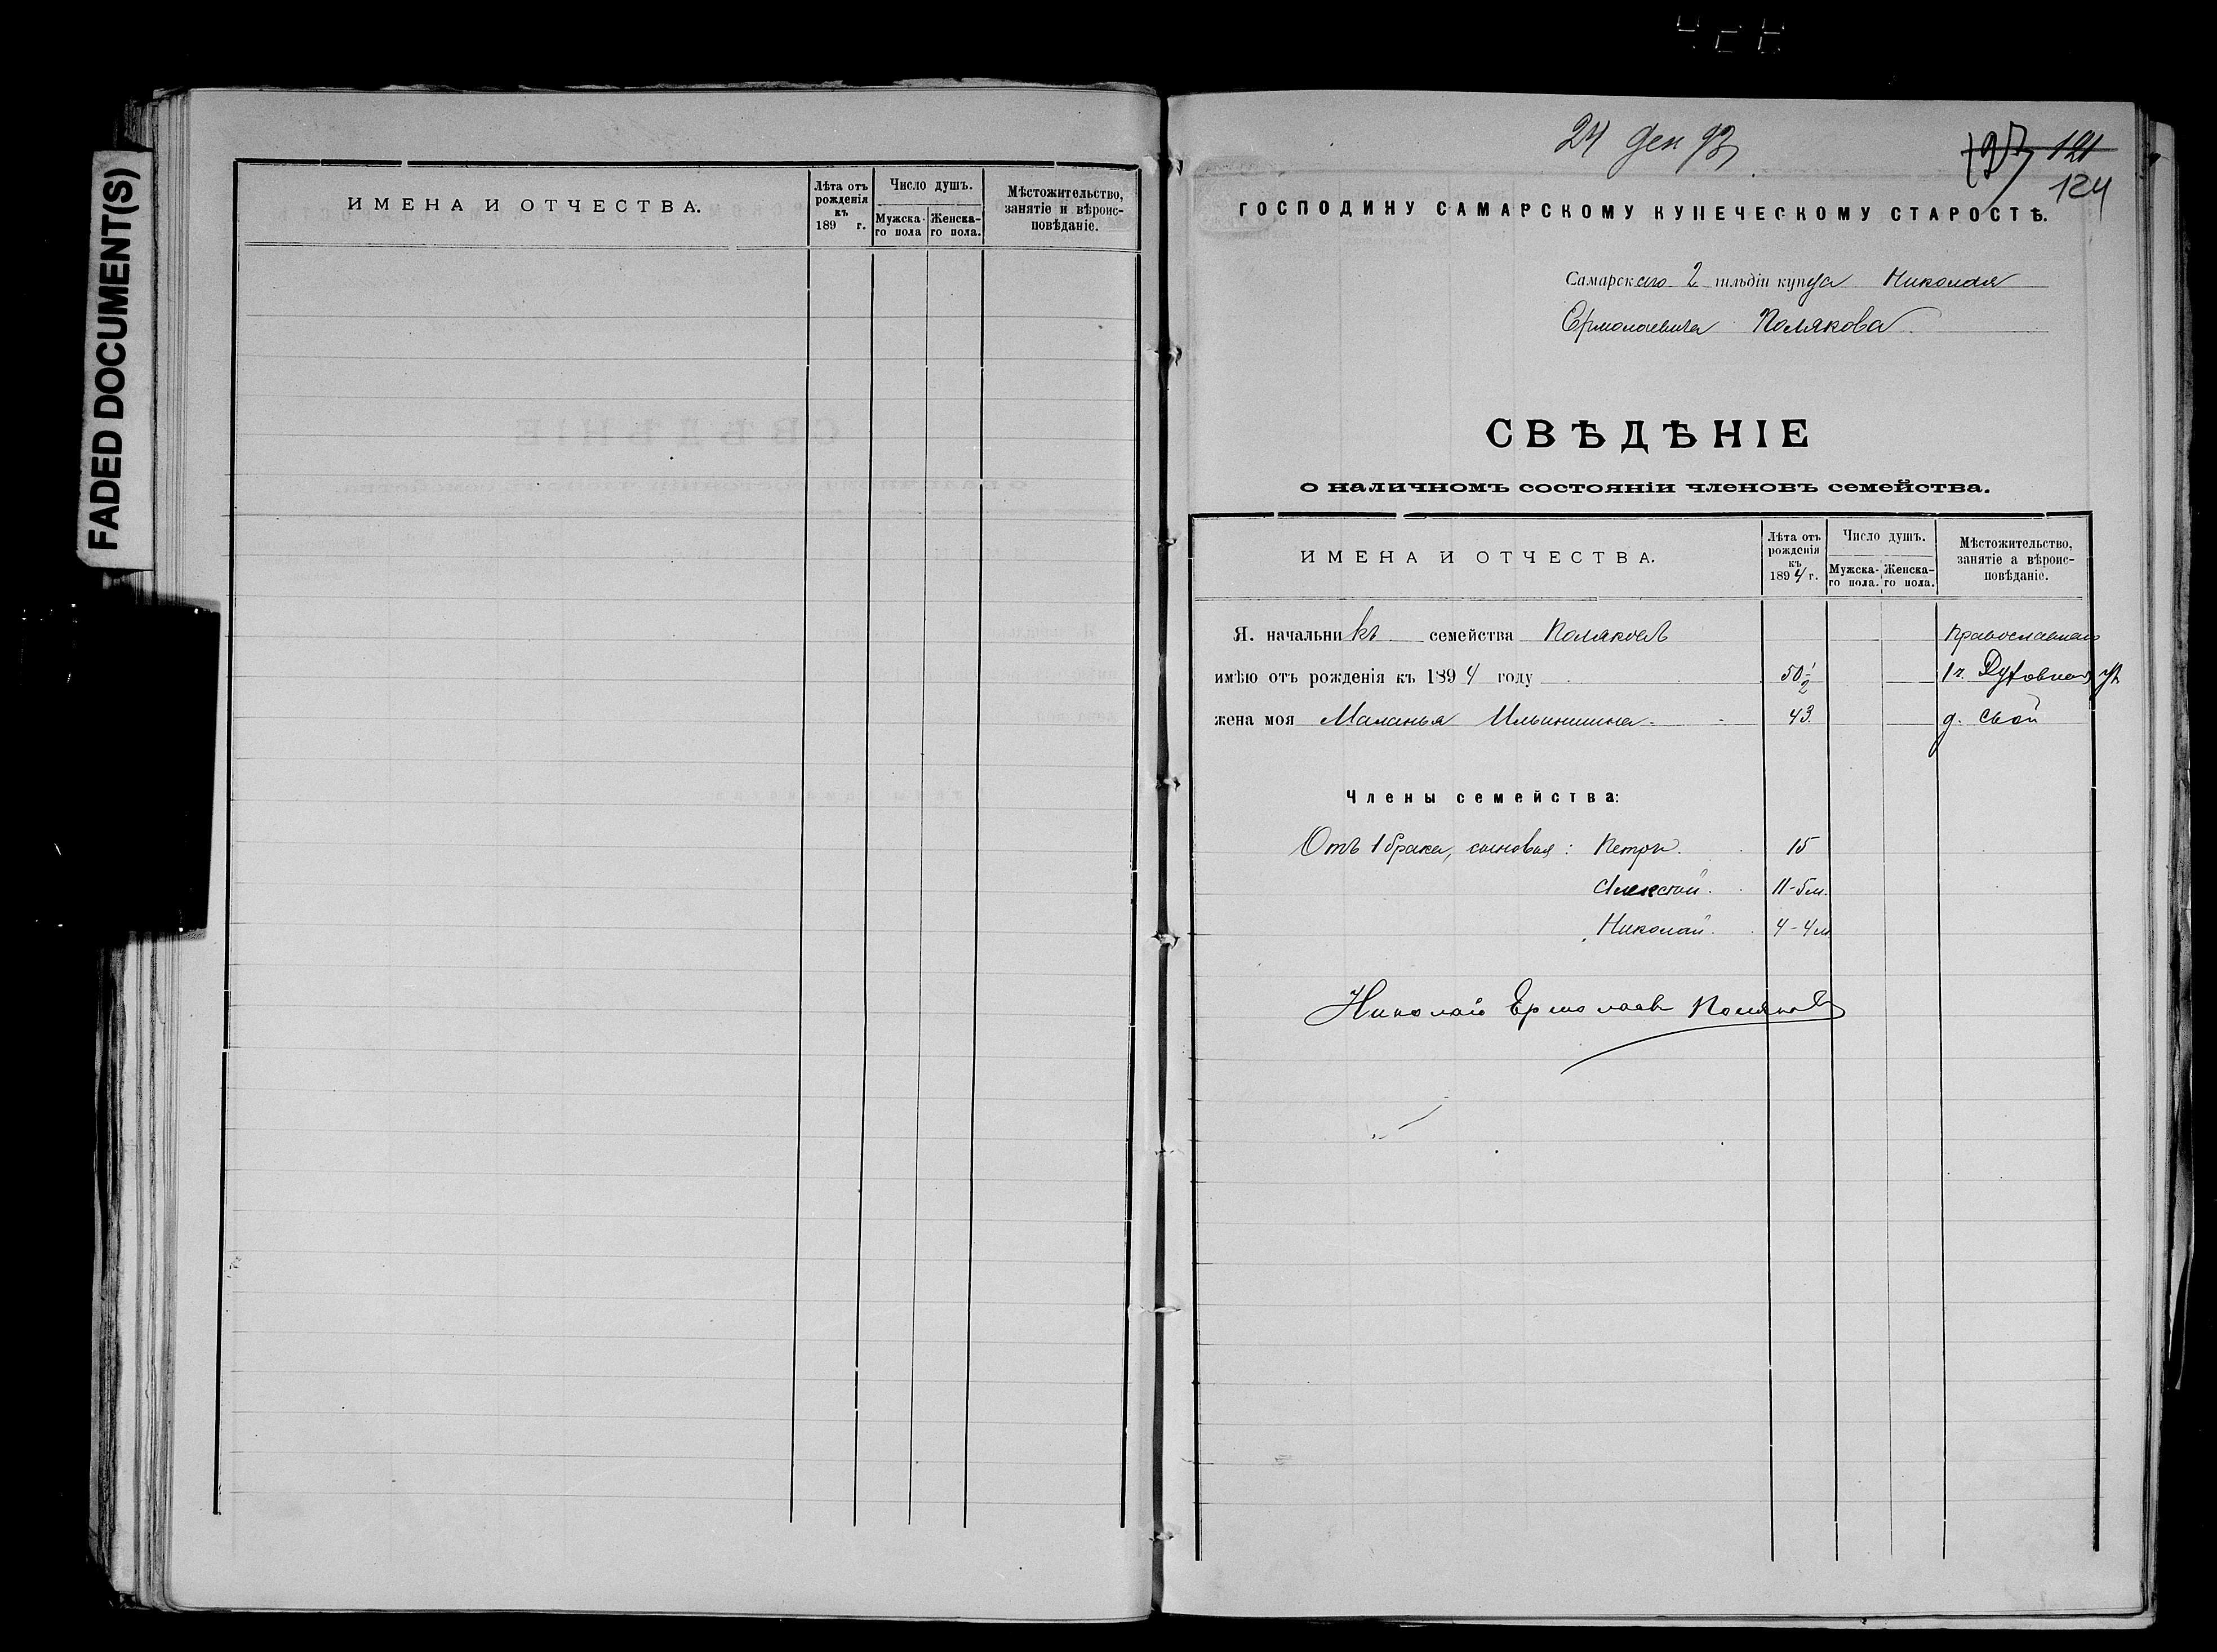 FADED DOCUMENT(S)
ИМЕНА И ОТЧЕСТВА.
Лѣта отъ рожденія къ 189 г.
Число душъ.
Мужскаго пола
Женскаго пола.
Мѣстожительство, занятіе и вѣроисповѣданіе.
24 дек 93
127 121
124
ГОСПОДИНУ САМАРСКОМУ КУПЕЧЕСКОМУ СТАРОСТѢ.
Самарскаго 2 гильдіи купца Николая
Ермолаевича Полякова.
СВѢДѢНІЕ
о наличномъ состояніи членовъ семейства.
ИМЕНА И ОТЧЕСТВА.
Лѣта отъ рожденія къ 1894 г.
Число душъ.
Мужска-го пола.
Женска-го пола.
Мѣстожительство, занятіе а вѣроис-повѣданіе.
Я. начальникъ семейства Поляковъ Православнаго
имѣю отъ рожденія къ 1894 году 50 1/2 1 ч. Духовная ул
жена моя Маланья Ильинишна 43. д. свой
Члены семейства:
Отъ 1 брака, сыновья: Петръ. 15
Алексѣй. 11-5м.
Николай. 4-4м
Николай Ермолаев Поляковъ